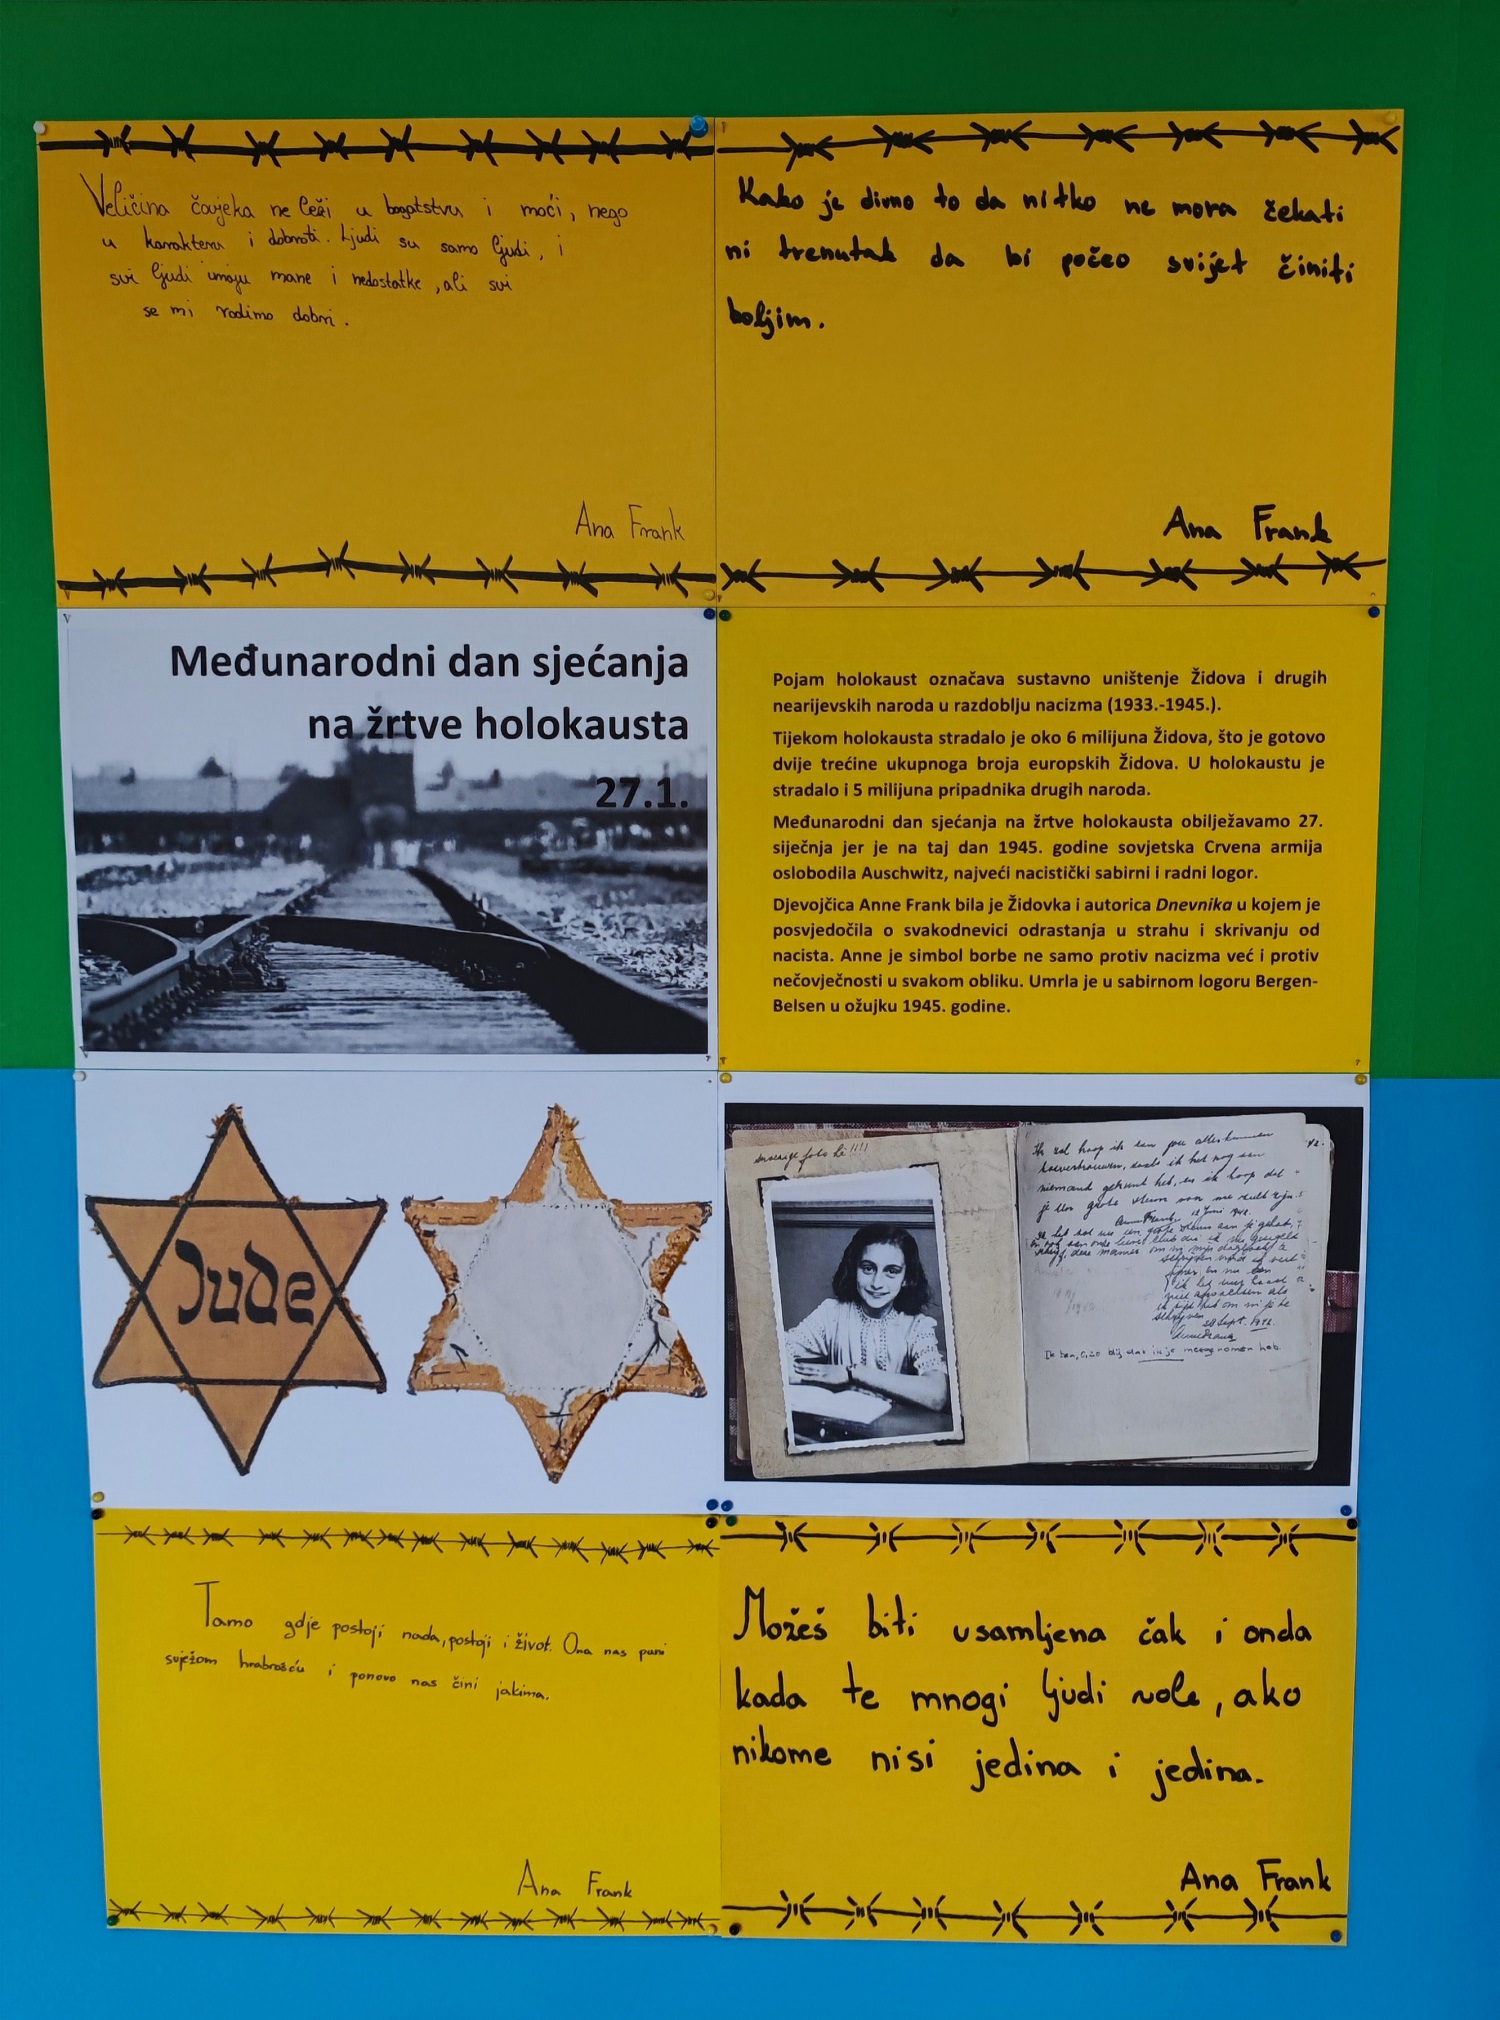 Veličina čovjeka ne leži u bogatstvu i moći, nego
u karakteru i dobroti. Ljudi su samo ljudi, i
svi ljudi imaju mane i nedostatke, ali svi
se mi rodimo dobri.
Ana Frank
Kako je divno to da nitko ne mora čekati
ni trenutak da bi počeo svijet činiti
boljim.
Ana Frank
Međunarodni dan sjećanja
na žrtve holokausta
27.1.
Pojam holokaust označava sustavno uništenje Židova i drugih
nearijevskih naroda u razdoblju nacizma (1933.-1945.).
Tijekom holokausta stradalo je oko 6 milijuna Židova, što je gotovo
dvije trećine ukupnoga broja europskih Židova. U holokaustu je
stradalo i 5 milijuna pripadnika drugih naroda.
Međunarodni dan sjećanja na žrtve holokausta obilježavamo 27.
siječnja jer je na taj dan 1945. godine sovjetska Crvena armija
oslobodila Auschwitz, najveći nacistički sabirni i radni logor.
Djevojčica Anne Frank bila je Židovka i autorica Dnevnika u kojem je
posvjedočila o svakodnevici odrastanja u strahu i skrivanju od
nacista. Anne je simbol borbe ne samo protiv nacizma već i protiv
nečovječnosti u svakom obliku. Umrla je u sabirnom logoru Bergen-
Belsen u ožujku 1945. godine.
Jude
foto hè!!!!
Ik zal hoop ik aan jou alles kunnen
toevertrouwen, zoals ik het nog aan
niemand gekund heb, en ik hoop dat
je een grote steun voor me zult zijn.
Anne Frank. 12 Juni 1942.
28 Sept. 1942.
Anne Frank
Tamo gdje postoji nada, postoji i život. Ona nas puni
svježom hrabrošću i ponovo nas čini jakima.
Ana Frank
Možeš biti usamljena čak i onda
kada te mnogi ljudi vole, ako
nikome nisi jedina i jedina.
Ana Frank